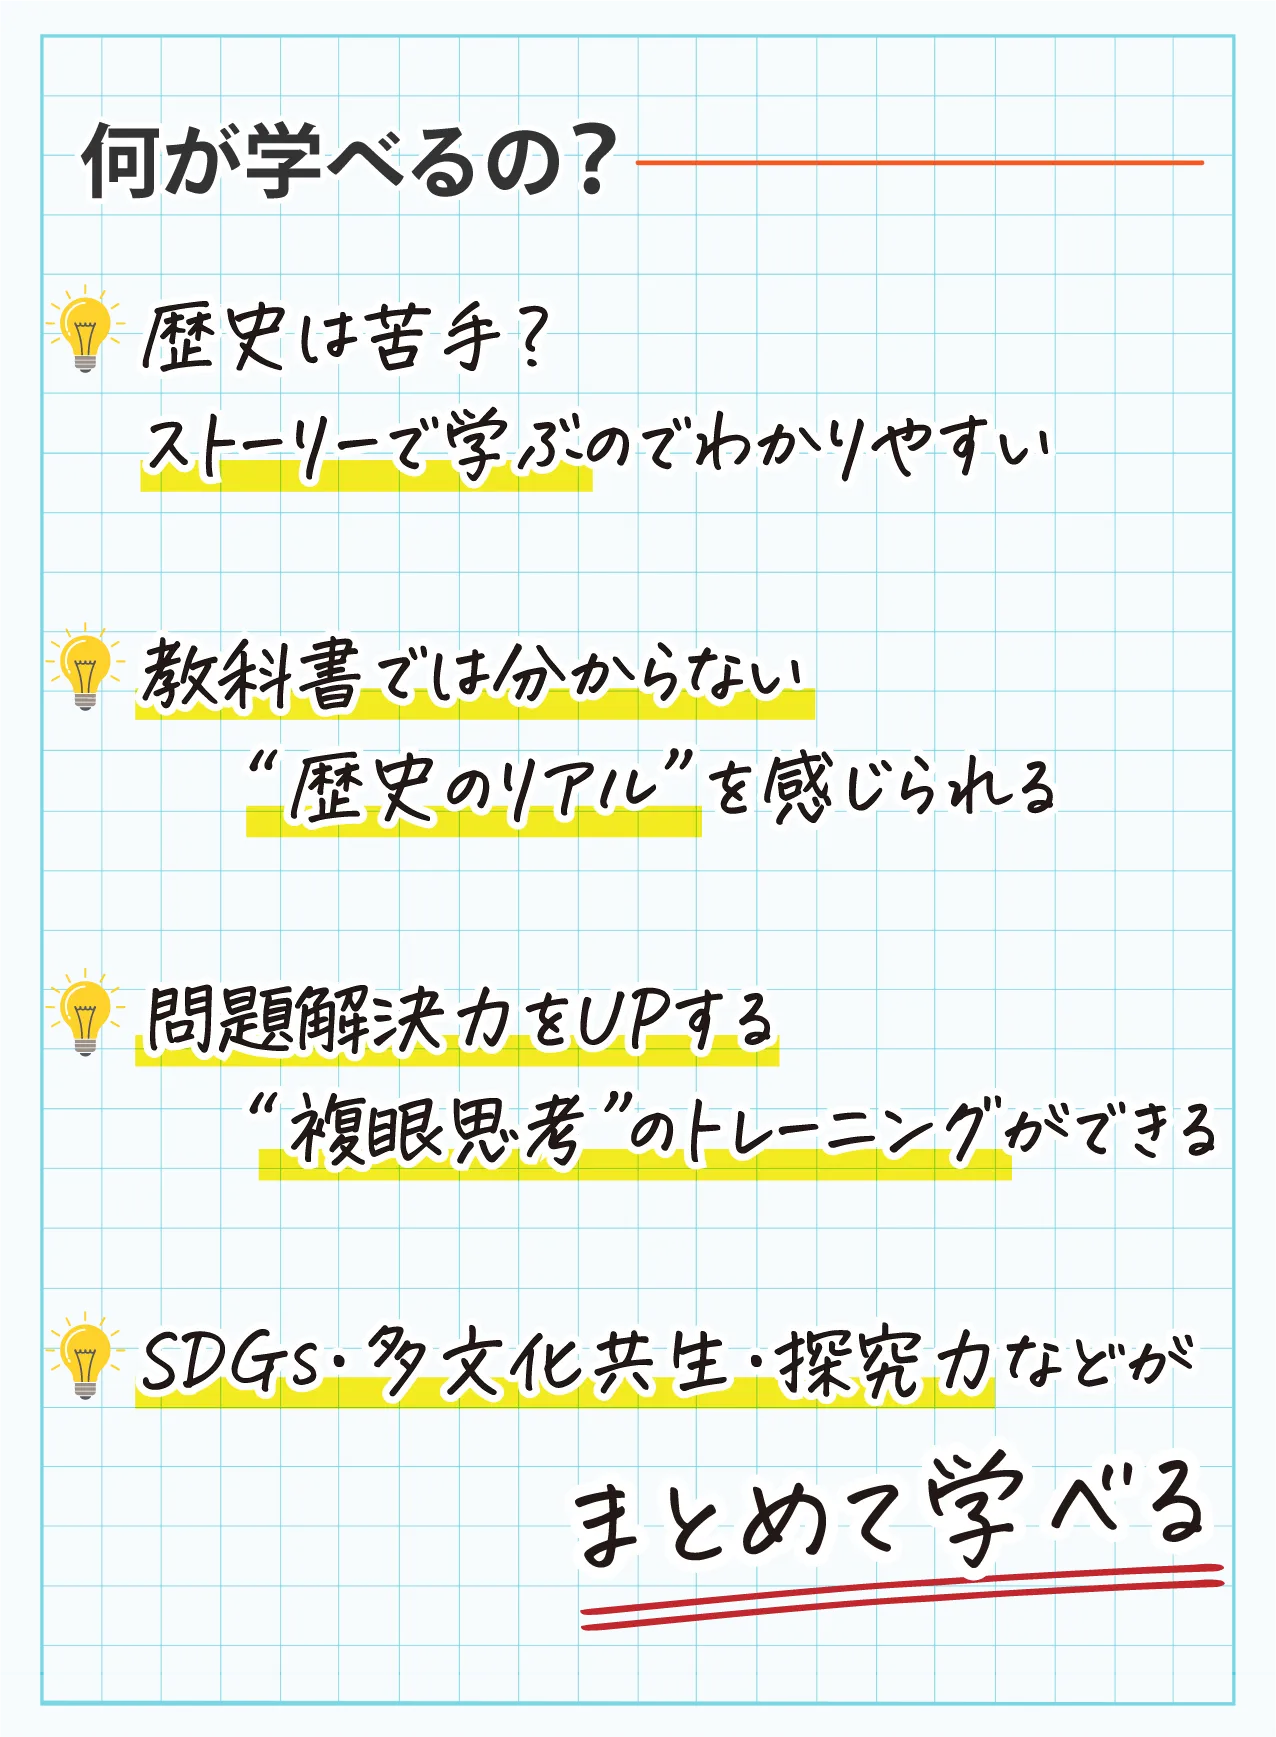 何が学べるの？
歴史は苦手？
ストーリーで学ぶのでわかりやすい
教科書では分からない
“歴史のリアル”を感じられる
問題解決力をUPする
“複眼思考”のトレーニングができる
SDGs・多文化共生・探究力などが
まとめて学べる